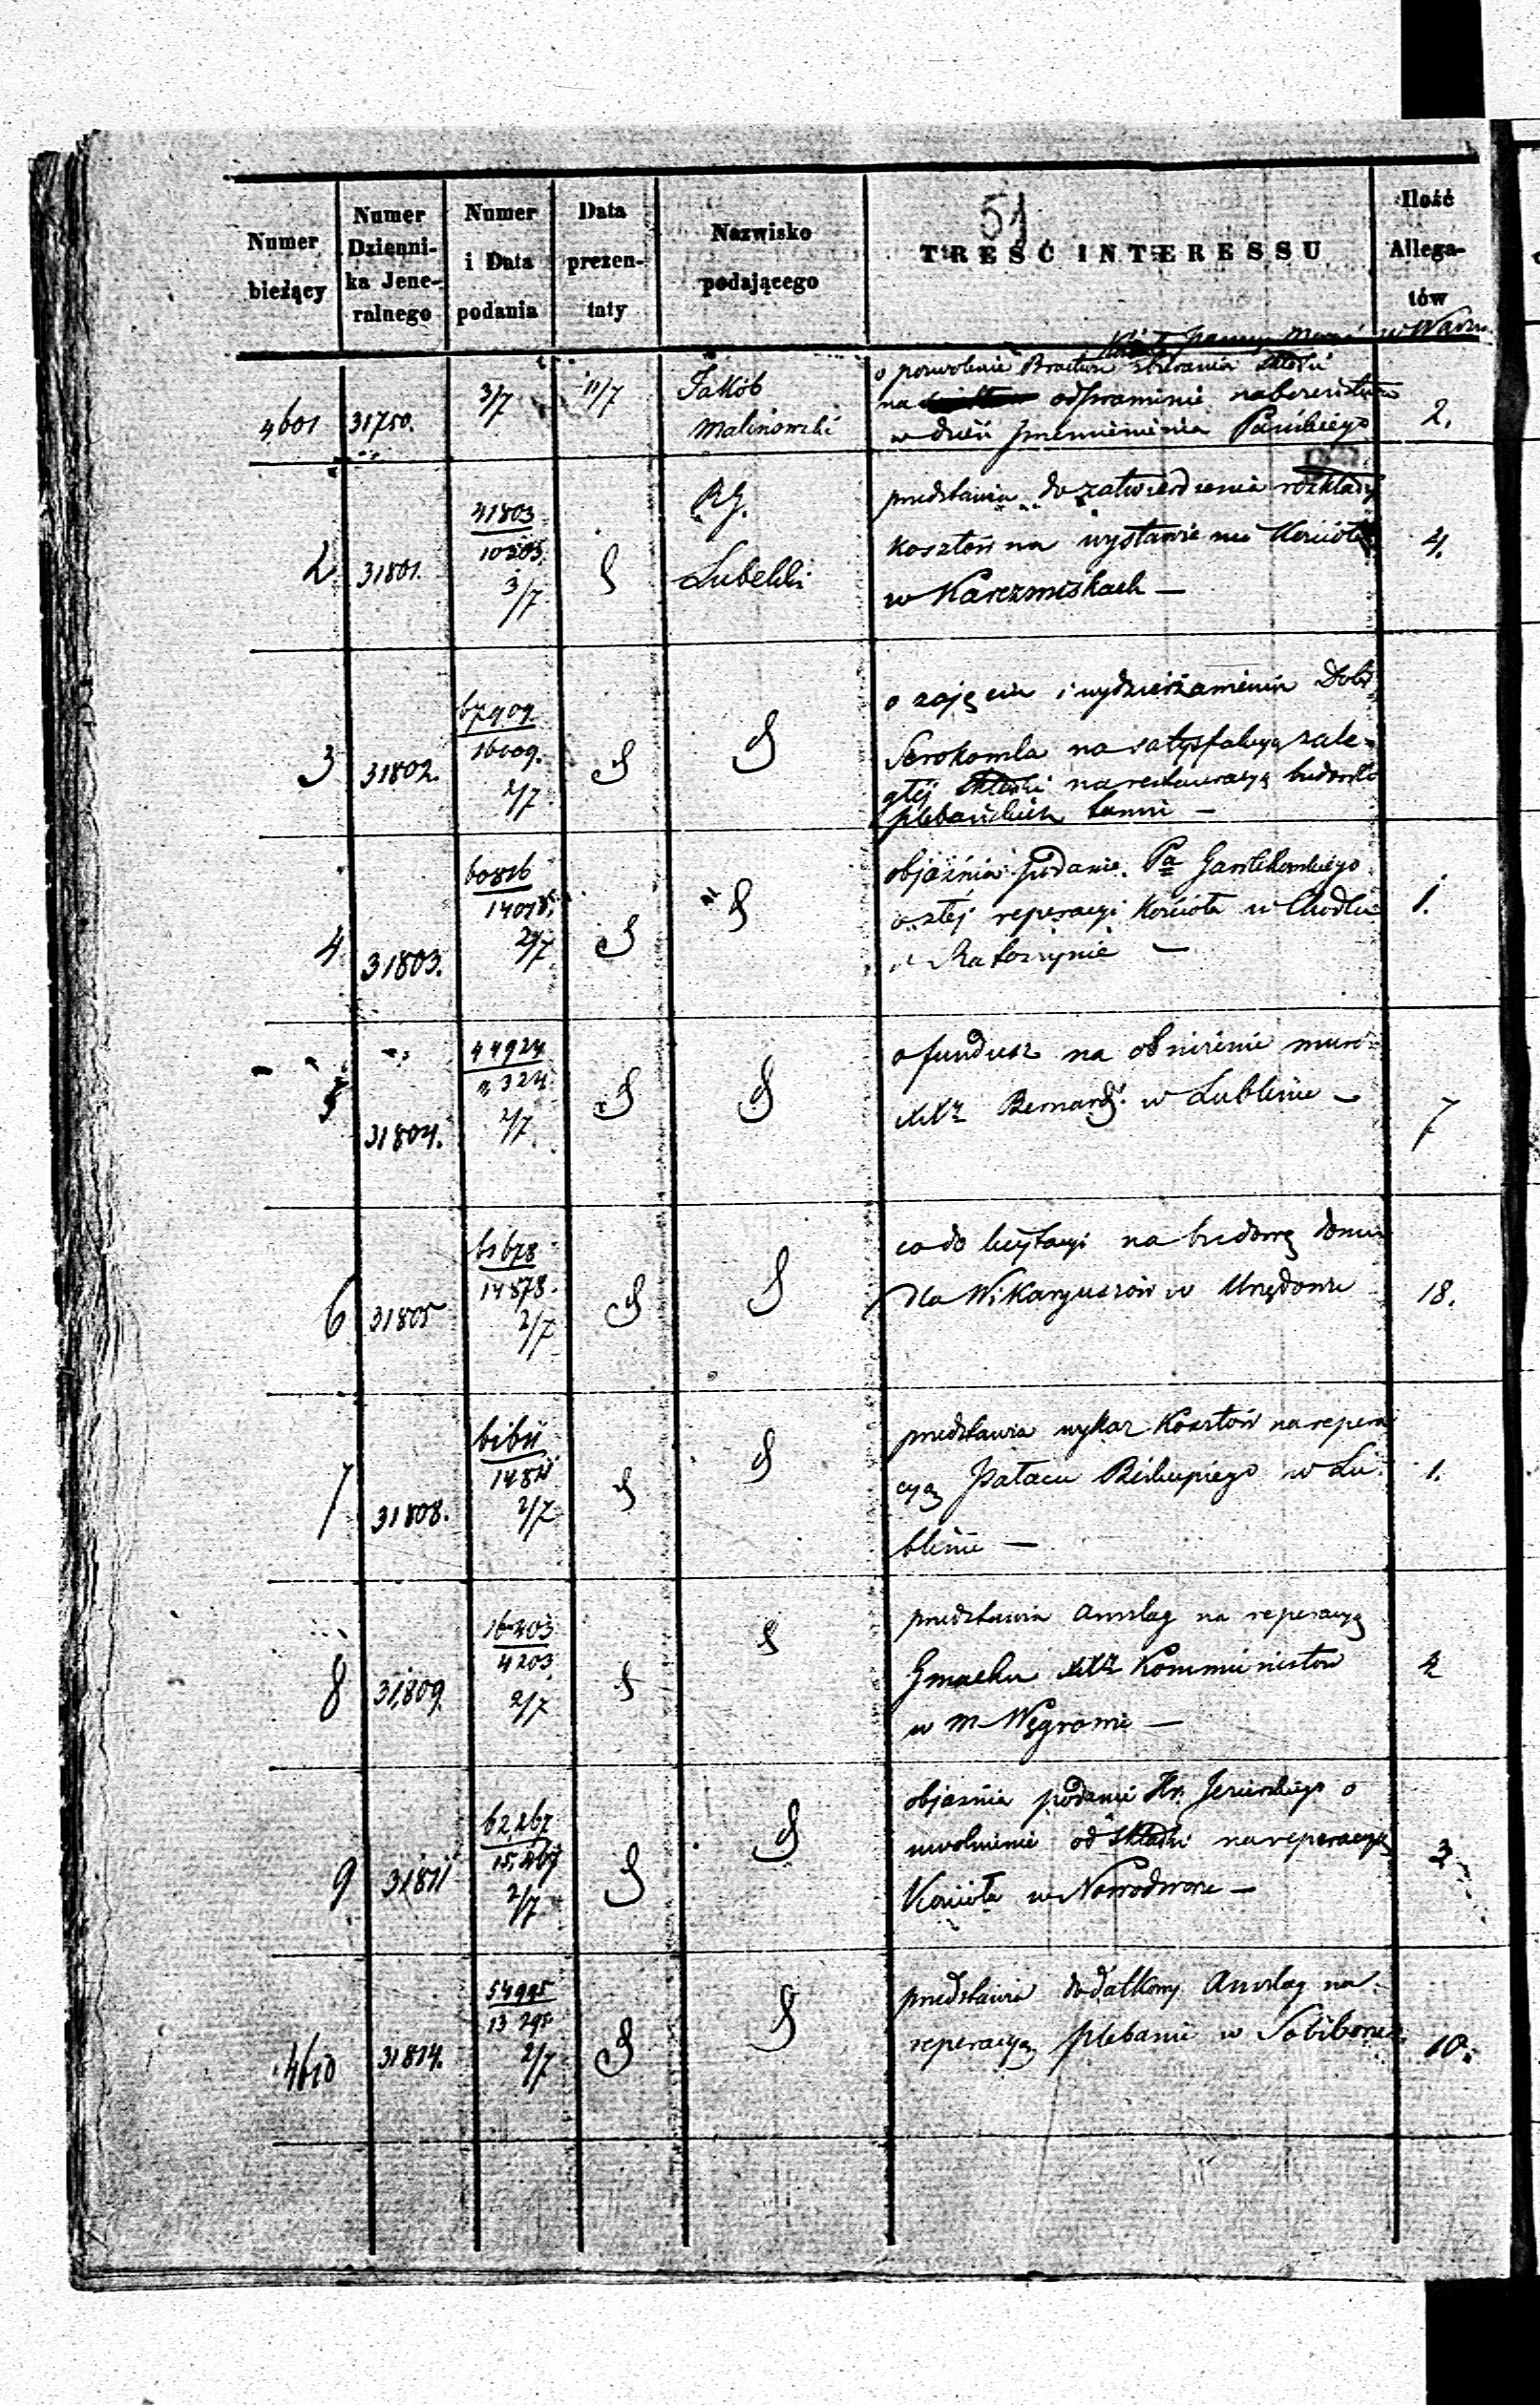 51
Numer bieżący
Numer Dzienni-ka Jene-ralnego
Numer i Data podania
Data prezen-taty
Nazwisko podającego
TREŚĆ INTERESSU
Ilość Allega-tów
Panny w Warsz.
4601 31750. 3/7 11/7 Jakób Malinowski
o pozwolenie Bractwu zbierania składu
na odprawienie nabożeństwa
w dzień Przemienienia Pańskiego 2.
2 31801. 41803 10205. 3/7 RG. Lubelski
przedstawia do zatwierdzenia rozkłady
kosztów na wystawienie Kościoła 4.
w Karczmiskach —
3 31802. 67909 16009. 2/7
o zajęcie i wydzierżawienie Dóbr
Serokomla na satysfakcyą zale-
głéj składki na restauracyą budowli
plebańskich tamże —
4 31803. 60816 2/7
objaśnia podanie Pa
o złéj reperacyi Kościoła w Chodlu 1.
i Ratoszynie —
5 31804. 44924 2/7
o fundusz na obniżenie muró
XXży Bernard. w Lublinie — 7
6 31805 61678 14878. 2/7
co do licytacyi na budowę domu
dla Wikaryuszów w Urzędowie 18.
7 31808. 2/7
przedstawia wykaz kosztów na repera
cyą Pałacu Biskupiego w Lu 1.
blinie —
8 31,809. 16203 4203. 2/7
przedstawia Anszlag na reperacyą
Gmachu XXży Kommunistów
w m. Węgrowie —
9 31811 62,267 2/7
objaśnia podanie Hr. Jezierskiego o
uwolnienie od składki na reperacyą 3
Kościoła w Nowodworze —
4610 31814. 54995 13295 2/7
przedstawia dodatkowy Anszlag na
reperacyą plebanii w Sobiborze 10.